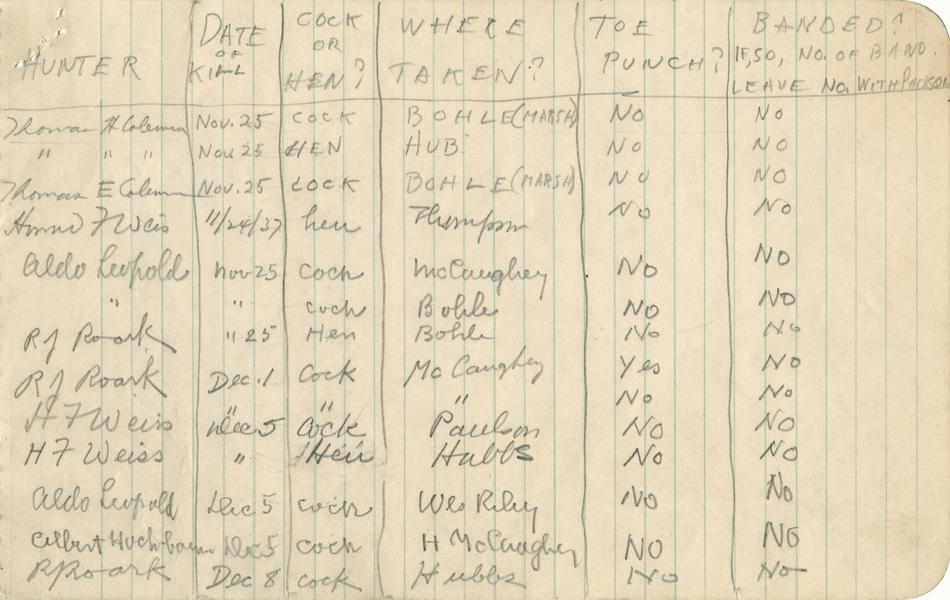 HUNTER DATE OF KILL COCK OR HEN? WHERE TAKEN? TOE PUNCH? BANDED? IF, SO, NO. OF BAND. LEAVE No. WITH PAULSON
Thomas H Coleman Nov. 25 COCK BOHLE (MARSH) NO NO
" " " Nov. 25 HEN HUB. NO NO
Thomas E Coleman Nov. 25 COCK BOHLE (MARSH) NO NO
F Weis 11/24/37 hen Thompson NO NO
Aldo Leopold Nov 25 Cock McCaughey NO NO
" " cock Bohle NO NO
RJ Roark " 25 Hen Bohle No No
RJ Roark Dec. 1 Cock McCaughey Yes No
" " " No No
H F Weiss Dec 5 Cock Paulson NO NO
H F Weiss " Hen Hubbs No No
Aldo Leopold Dec 5 cock Wes Riley NO No
Albert Hochbaum Dec 5 cock H McCaughey NO NO
RJ Roark Dec 8 cock Hubbs No No